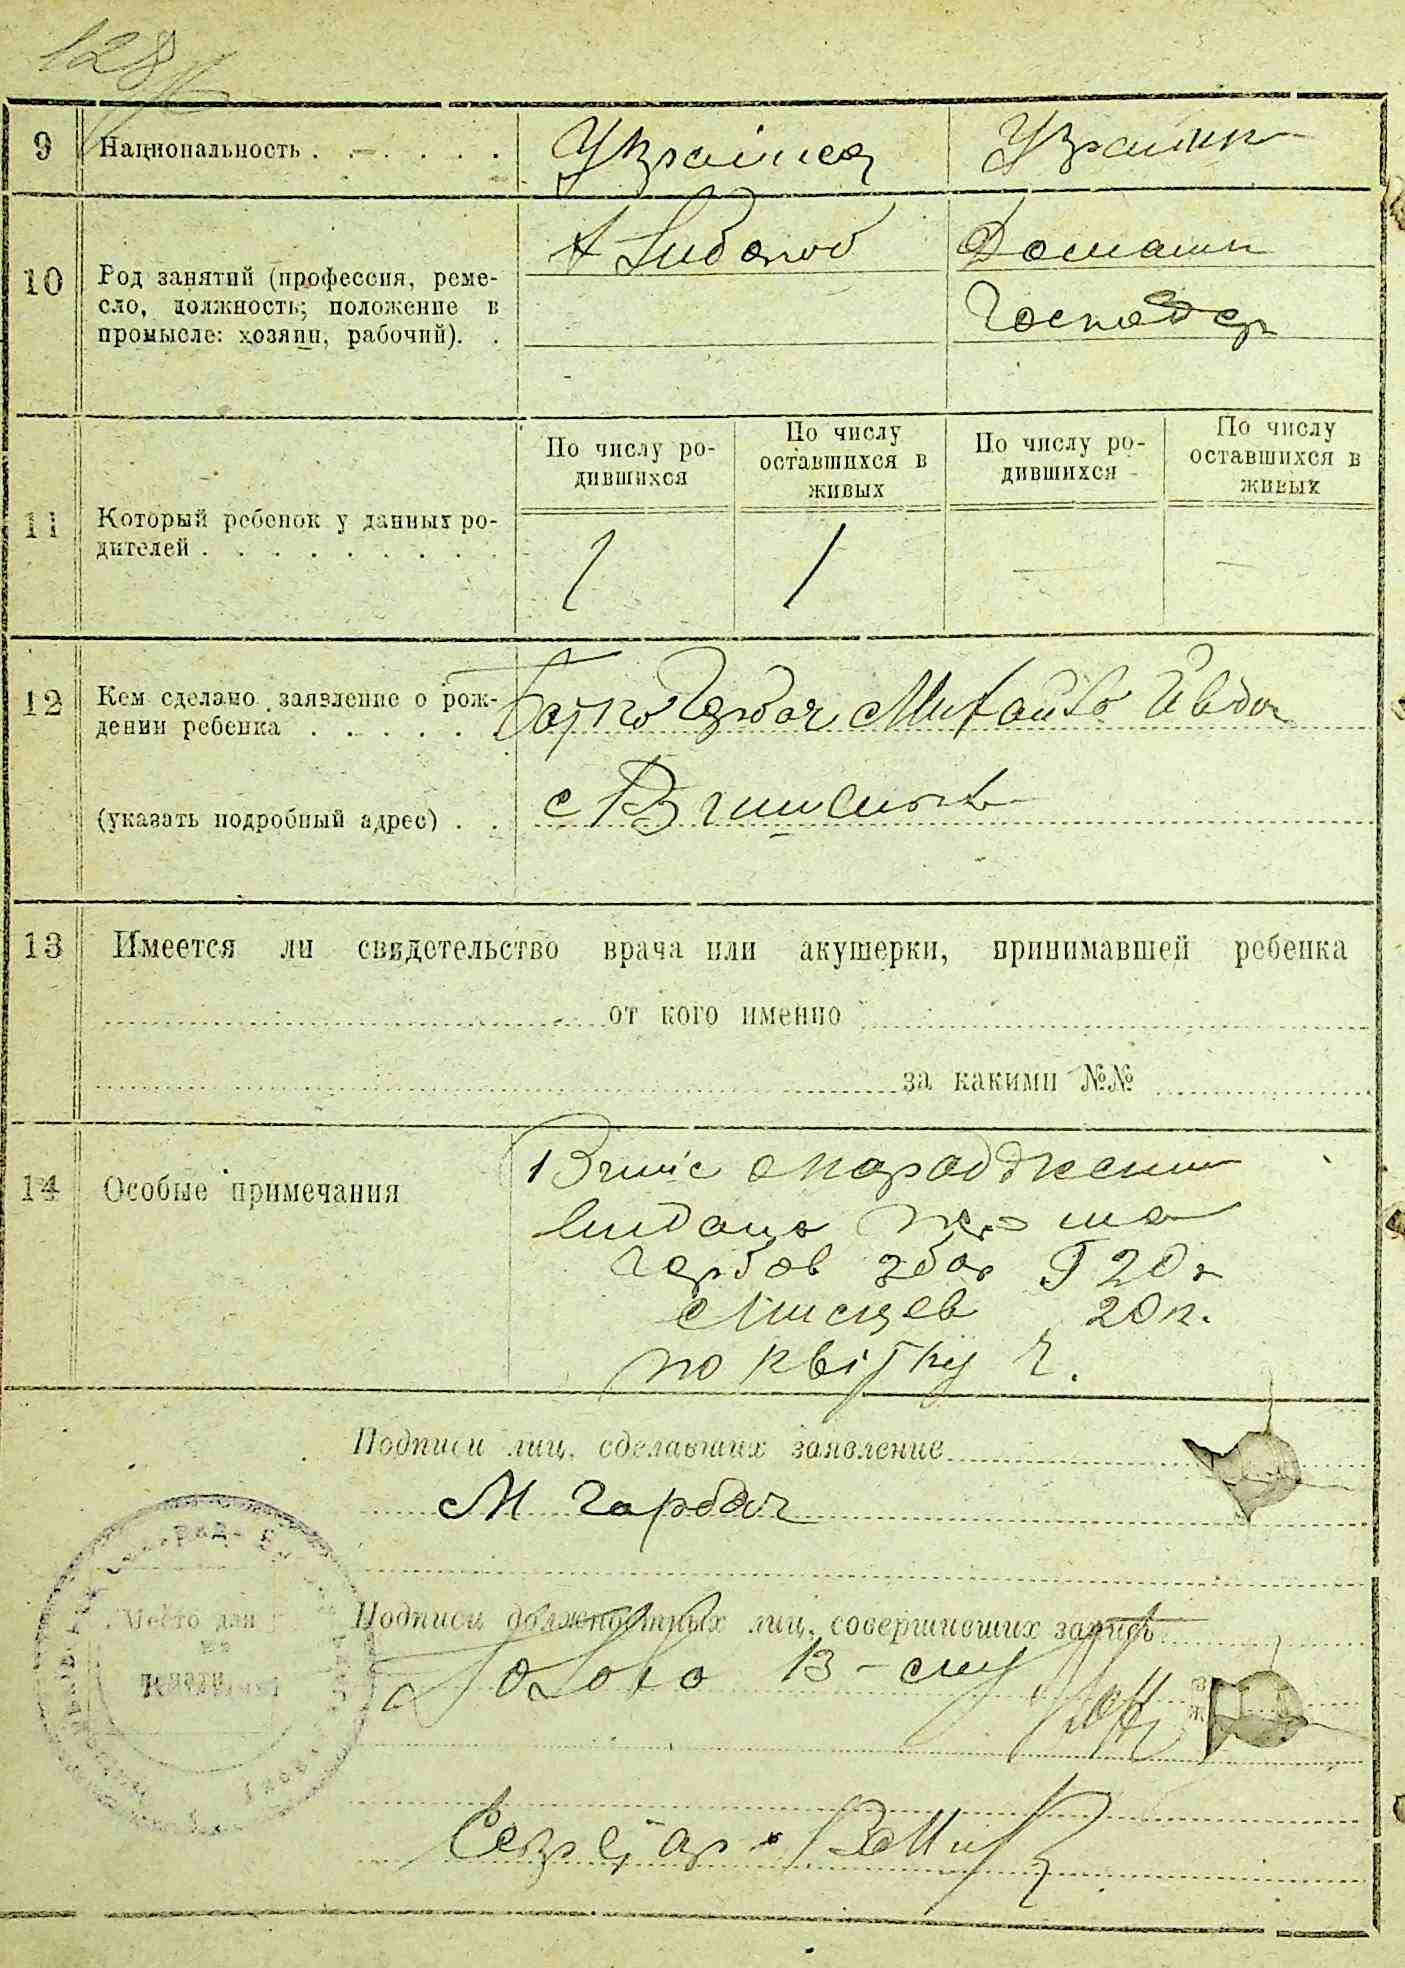 128
9 Национальность . . . . . . Українец Украинк
10 Род занятий (профессия, реме-
сло, должность; положение в
промысле: хозяин, рабочий). .
Хлибороб Домашн
Господар
11 Который ребенок у данных ро-
дителей . . . . . . . . .
По числу ро-
дившихся
По числу
оставшихся в
живых
По числу ро-
дившихся
По числу
оставшихся в
живых
1 1 — —
12 Кем сделано заявление о рож-
дении ребенка . . . . . .
Батько Гарбач Михайло
(указать подробный адрес) . .
с
13 Имеется ли свидетельство врача или акушерки, принимавшей ребенка
от кого именно
за какими №№
14 Особые примечания
Випис о народженни
видано
Гербов збор 20к
Мисцев 20к.
по квітку Ч.
Подписи лиц, сделавших заявление
М Гарбач
Место для
печати
Подписи должностных лиц, совершивших запись
Голова В-ску
Секретар